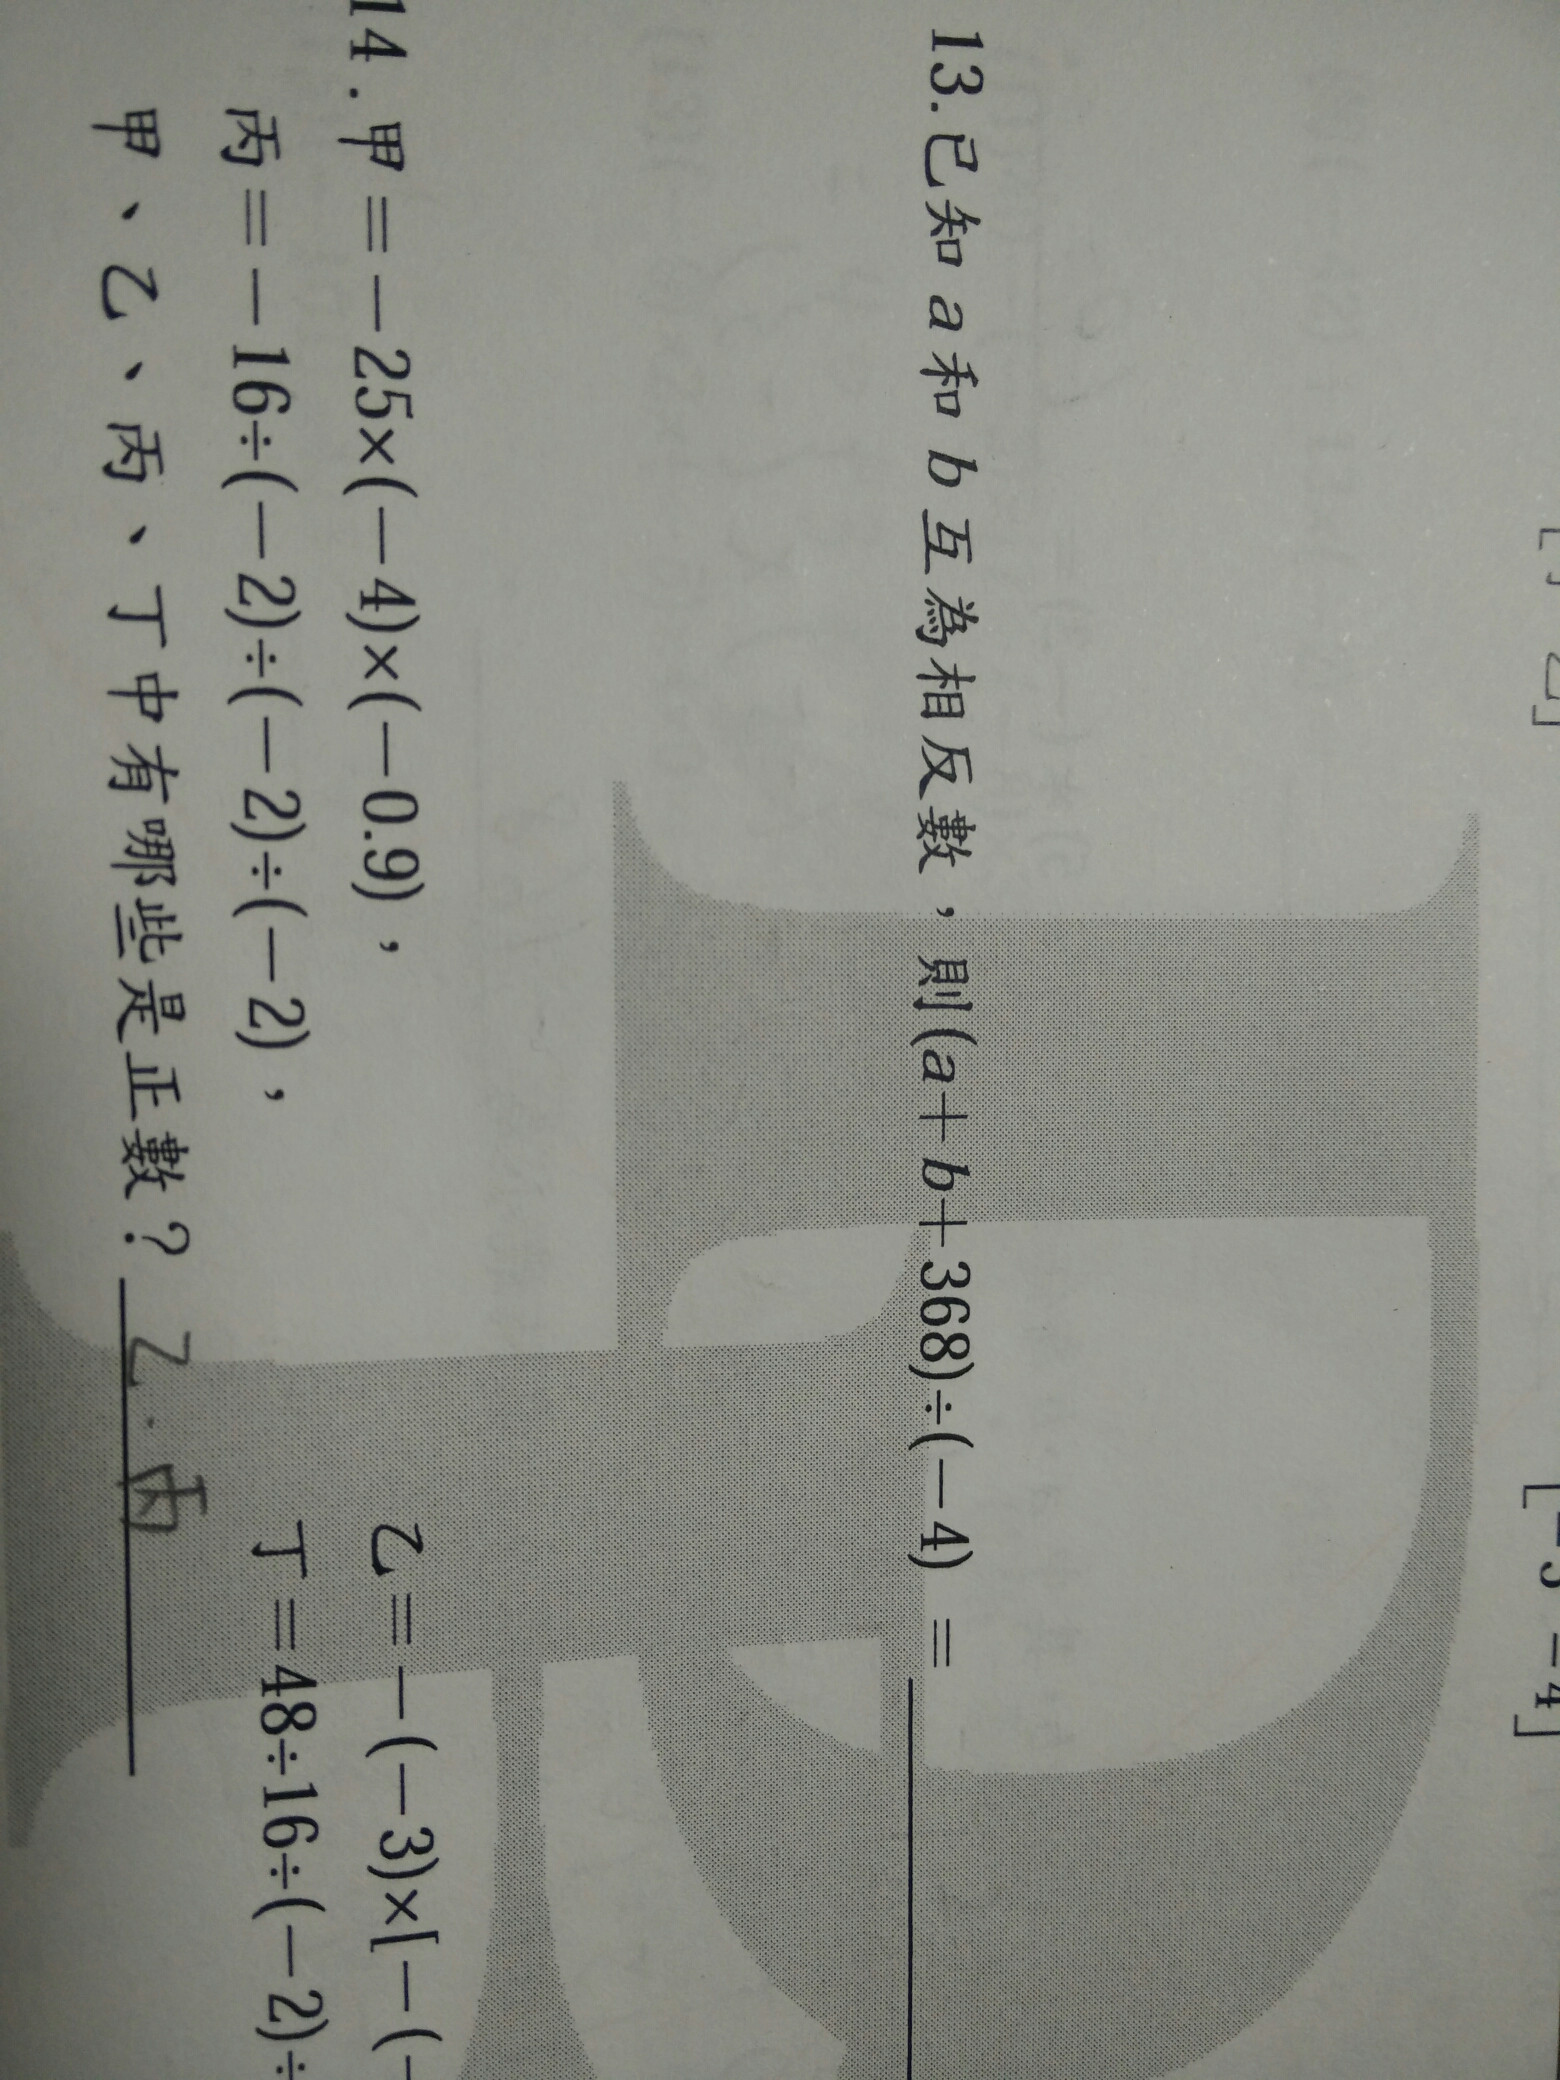 13.已知 a 和 b 互為相反數，則(a＋b＋368)÷(－4) ＝
14.甲＝－25×(－4)×(－0.9)， 乙＝－(－3)×[－(－
丙＝－16÷(－2)÷(－2)÷(－2)， 丁＝48÷16÷(－2)÷
甲、乙、丙、丁中有哪些是正數？ 乙.丙